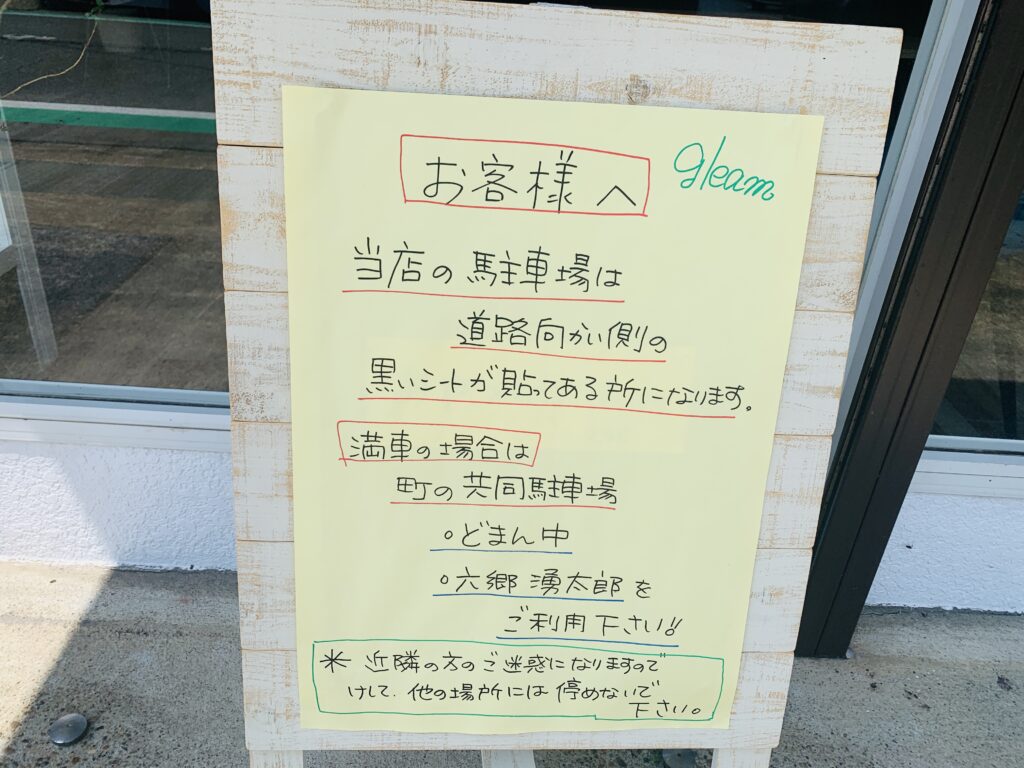 お客様へ
gleam
当店の駐車場は
道路向かい側の
黒いシートが貼ってある所になります。
満車の場合は
町の共同駐車場
○どまん中
○六郷湧太郎を
ご利用下さい!!
＊近隣の方のご迷惑になりますので
けして、他の場所には停めないで
下さい。